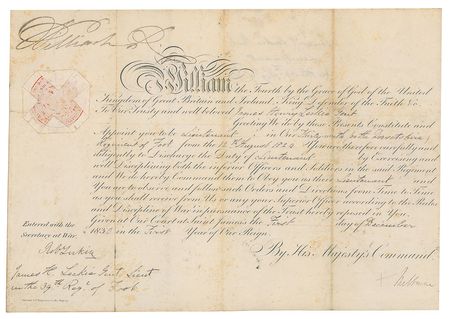 William R.
William the Fourth by the Grace of God of the United
Kingdom of Great Britain and Ireland, King, Defender of the Faith &c.
To Our Trusty and well beloved James Henry Leslie Gent
Greeting We do by these Presents Constitute and
Appoint you to be Lieutenant in Our
Regiment of Foot from the August You are therefore carefully and
diligently to Discharge the Duty of Lieutenant by Exercising and
well Disciplining both the inferior Officers and Soldiers in the said Regiment
and We do hereby Command them to Obey you as their Lieutenant and
You are to observe and follow such Orders and Directions from Time to Time
as you shall receive from Us or any your Superior Officer according to the Rules
and Discipline of War in pursuance of the Trust hereby reposed in You
Given at Our Court at Saint James's the First day of December
1830 in the First Year of Our Reign
Entered with the
Secretary at War
By His Majesty's Command
Melbourne
James H. Leslie Gent Lieut
in the 39th Regt. of Foot